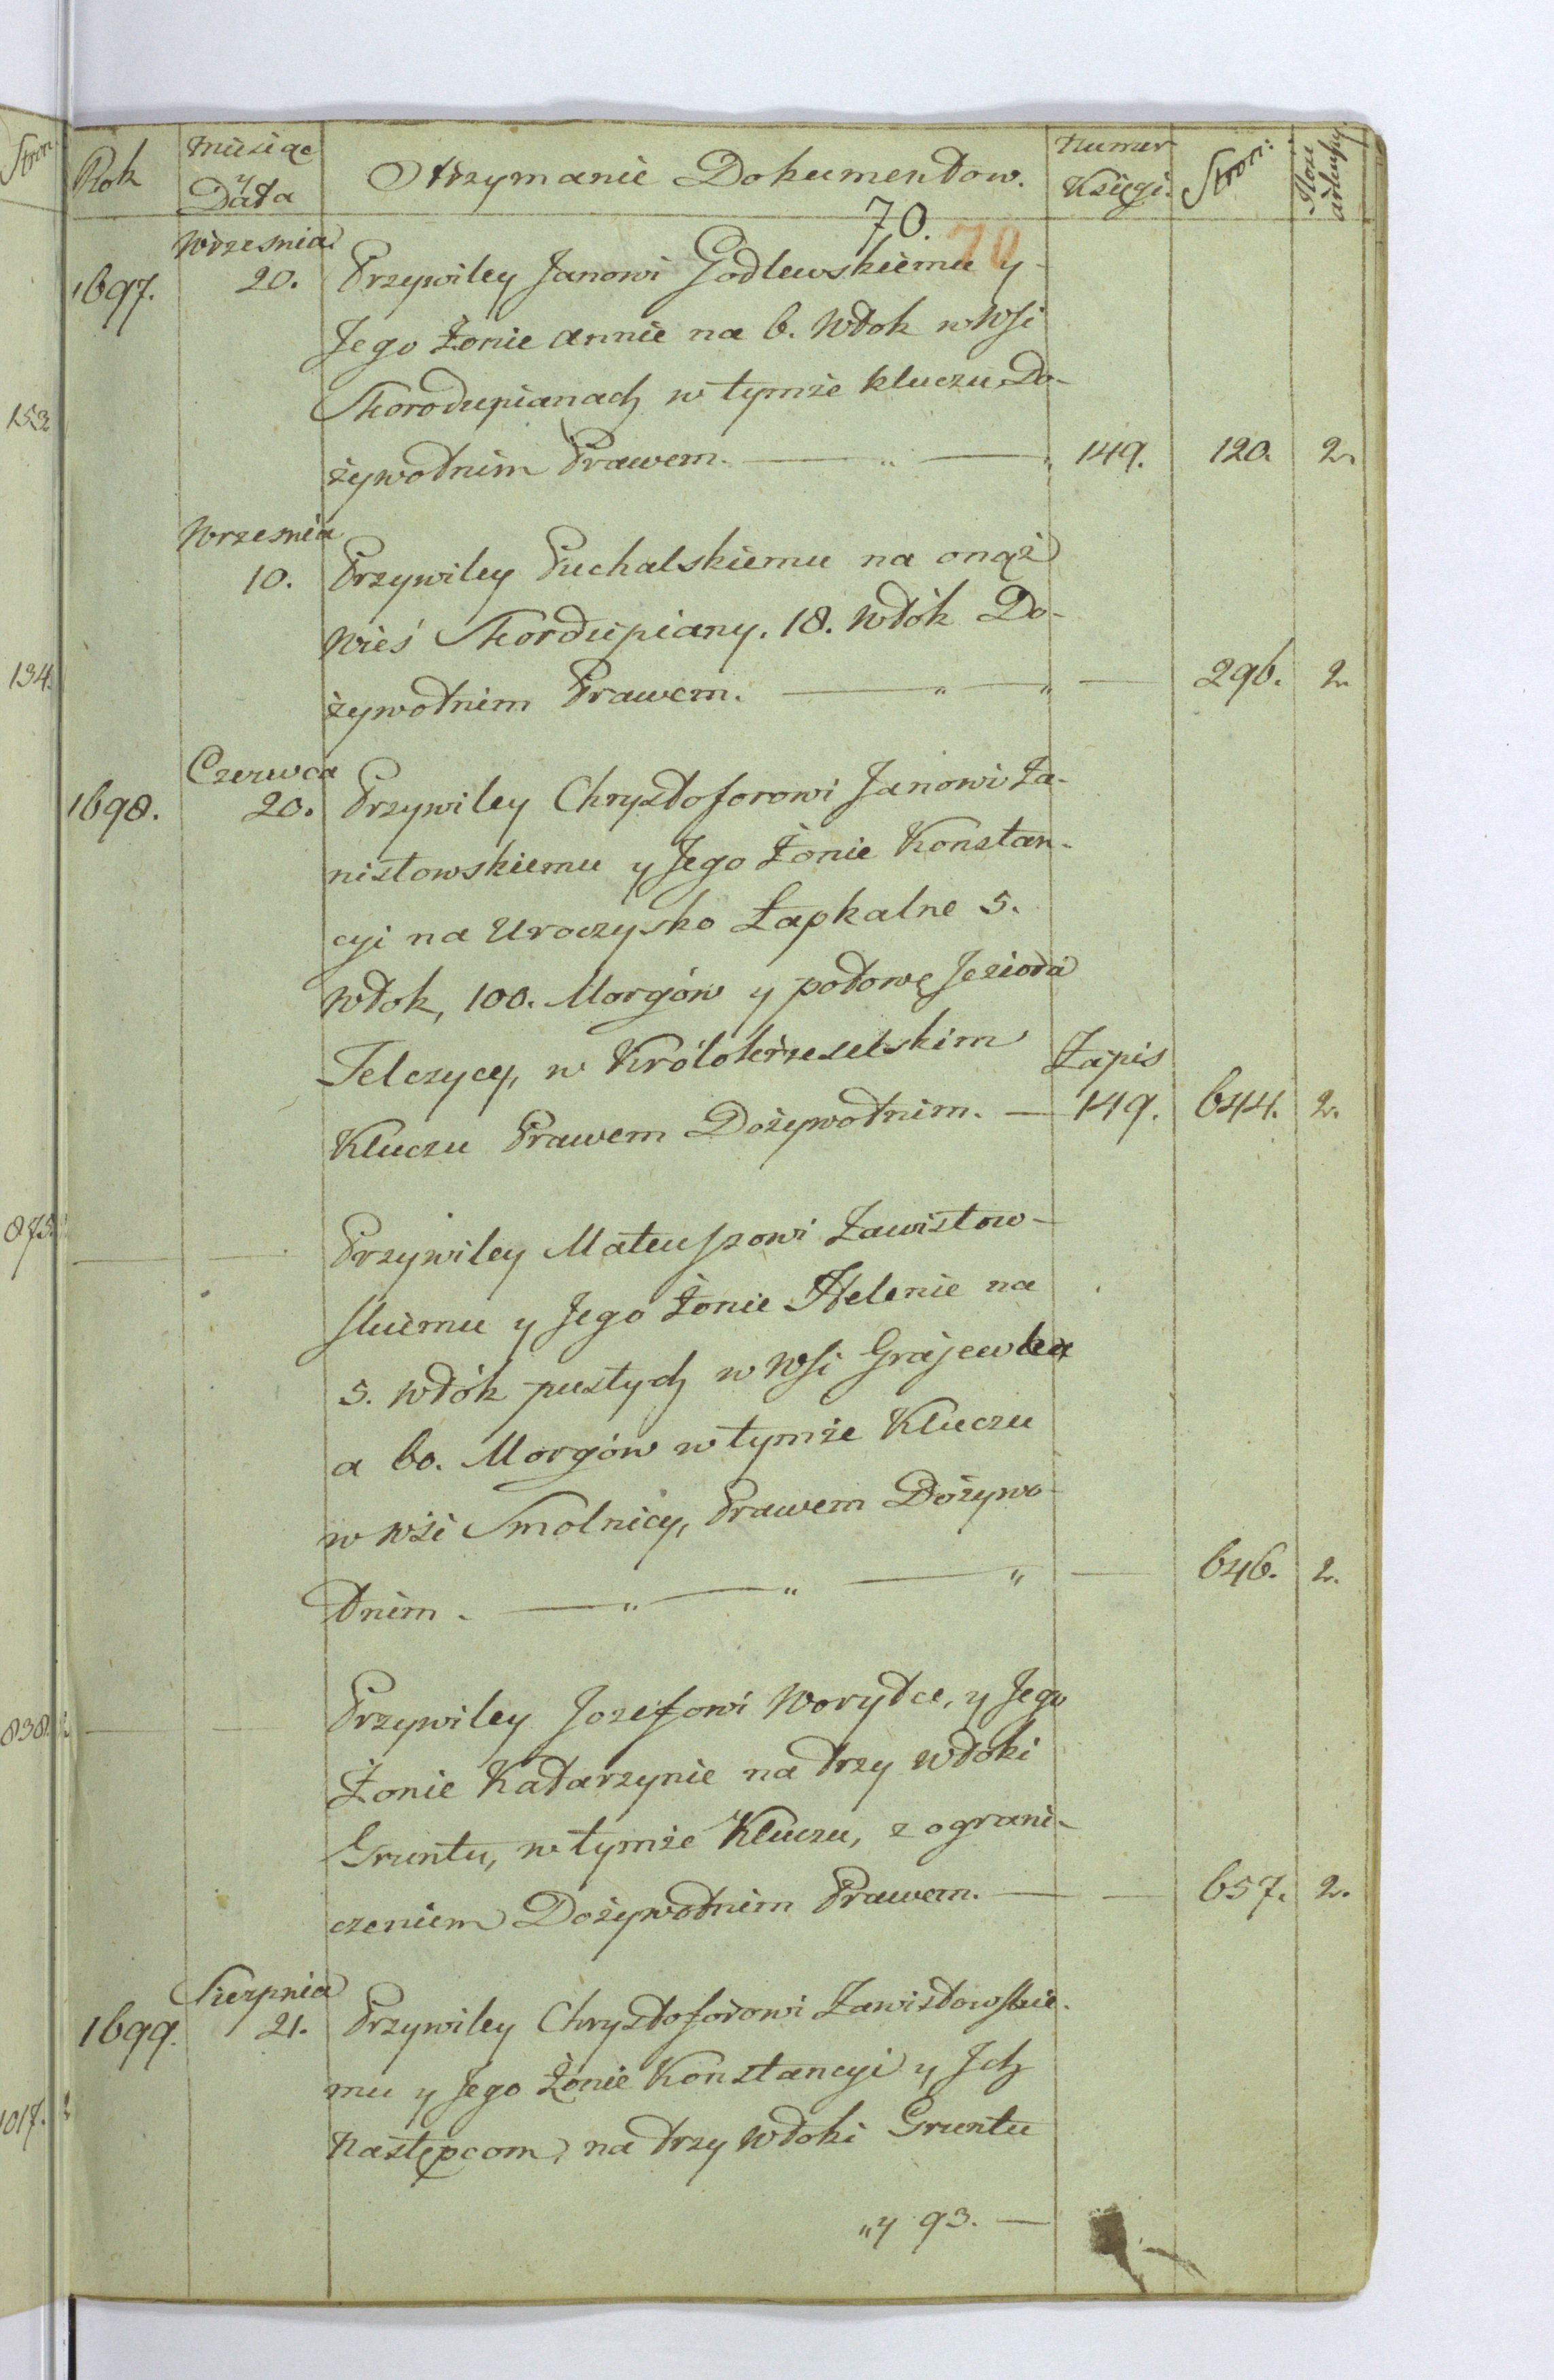 Stron.
Rok
Miesiąc
y
Data
Otrzymanie Dokumentow.
Numer
Księgi.
Stron:
Ilosc
arkuszy.
70.
70
1697.
Wrzesnia
20.
Przywiley Janowi Godlewskiemu y
Jego Żonie Annie na 6. Włok w Wsi
Skorodupianach w tymże kluczu Do-
żywotnim Prawem.
149.
120.
2.
Wrzesnia
10.
Przywiley Puchalskiemu na onąż
Wieś Skordupiany. 18. Włók Do-
żywotnim Prawem.
296.
2.
1698.
Czerwca
20.
Przywiley Chrysztoforowi Janowi Za-
nistowskiemu y Jego Żonie Konstan-
cyi na Uroczysko Łapkalne 5.
Włok, 100. Morgów y połowę Jeziora
Telczycy, w Królokrzeselskim
Kluczu Prawem Dożywotnim.
Zapis
149.
644.
2.
Przywiley Mateuszowi Zawistow-
skiemu y Jego Żonie Helenie na
5. Włók pustych w Wsi Grajewka
a 60. Morgów w tymże Kluczu
w Wsi Smolnicy, Prawem Dożywo-
tnim.
646.
2.
Przywiley Jozefowi Worytce, y Jego
Żonie Katarzynie na trzy Włoki
Gruntu, w tymże Kluczu, z ograni-
czeniem Dożywotnim Prawem.
657.
2.
1699.
Sierpnia
21.
Przywiley Chrysztoforowi Zawistowskie-
mu y Jego Żonie Konstancyi y Ich
Następcom, na trzy Włoki Gruntu
„y 93.
153
134.
875.
838.
1017.